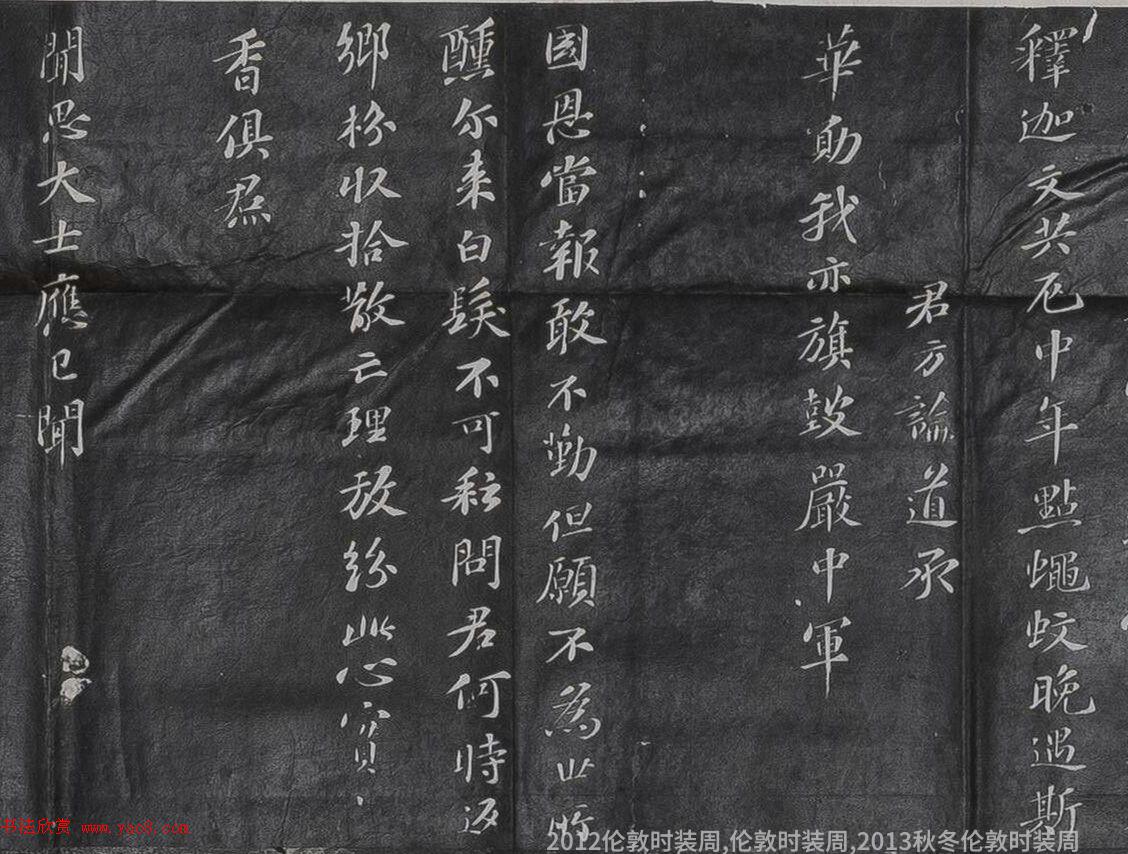 釋迦文共厄中年點蠅蚊晚遇斯
君方論道承
華勛我亦旗鼓嚴中軍
國恩當報敢不勤但願不為世所
醺尔来白髮不可耘問君何時返
鄉枌収拾散亡理放紛此心實
香俱焄
聞思大士應已聞
书法欣赏 www.yac8.com
2012伦敦时装周,伦敦时装周,2013秋冬伦敦时装周